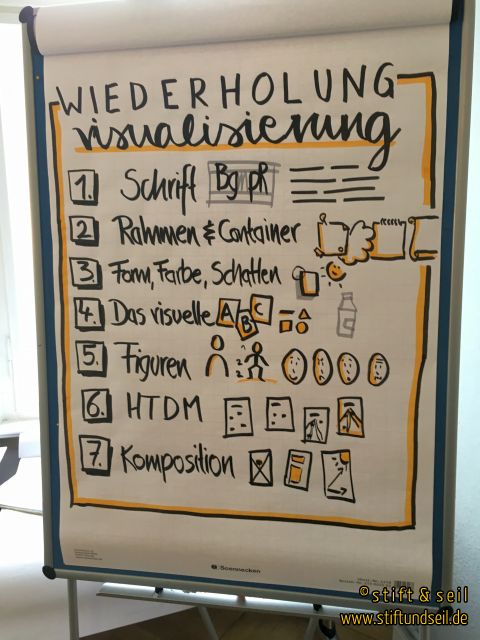 WIEDERHOLUNG
visualisierung
1. Schrift Bg pR
2. Rahmen & Container
3. Form, Farbe, Schatten
4. Das visuelle A B C
5. Figuren
6. HTDM
7. Komposition
Soennecken
© stift & seil
www.stiftundseil.de